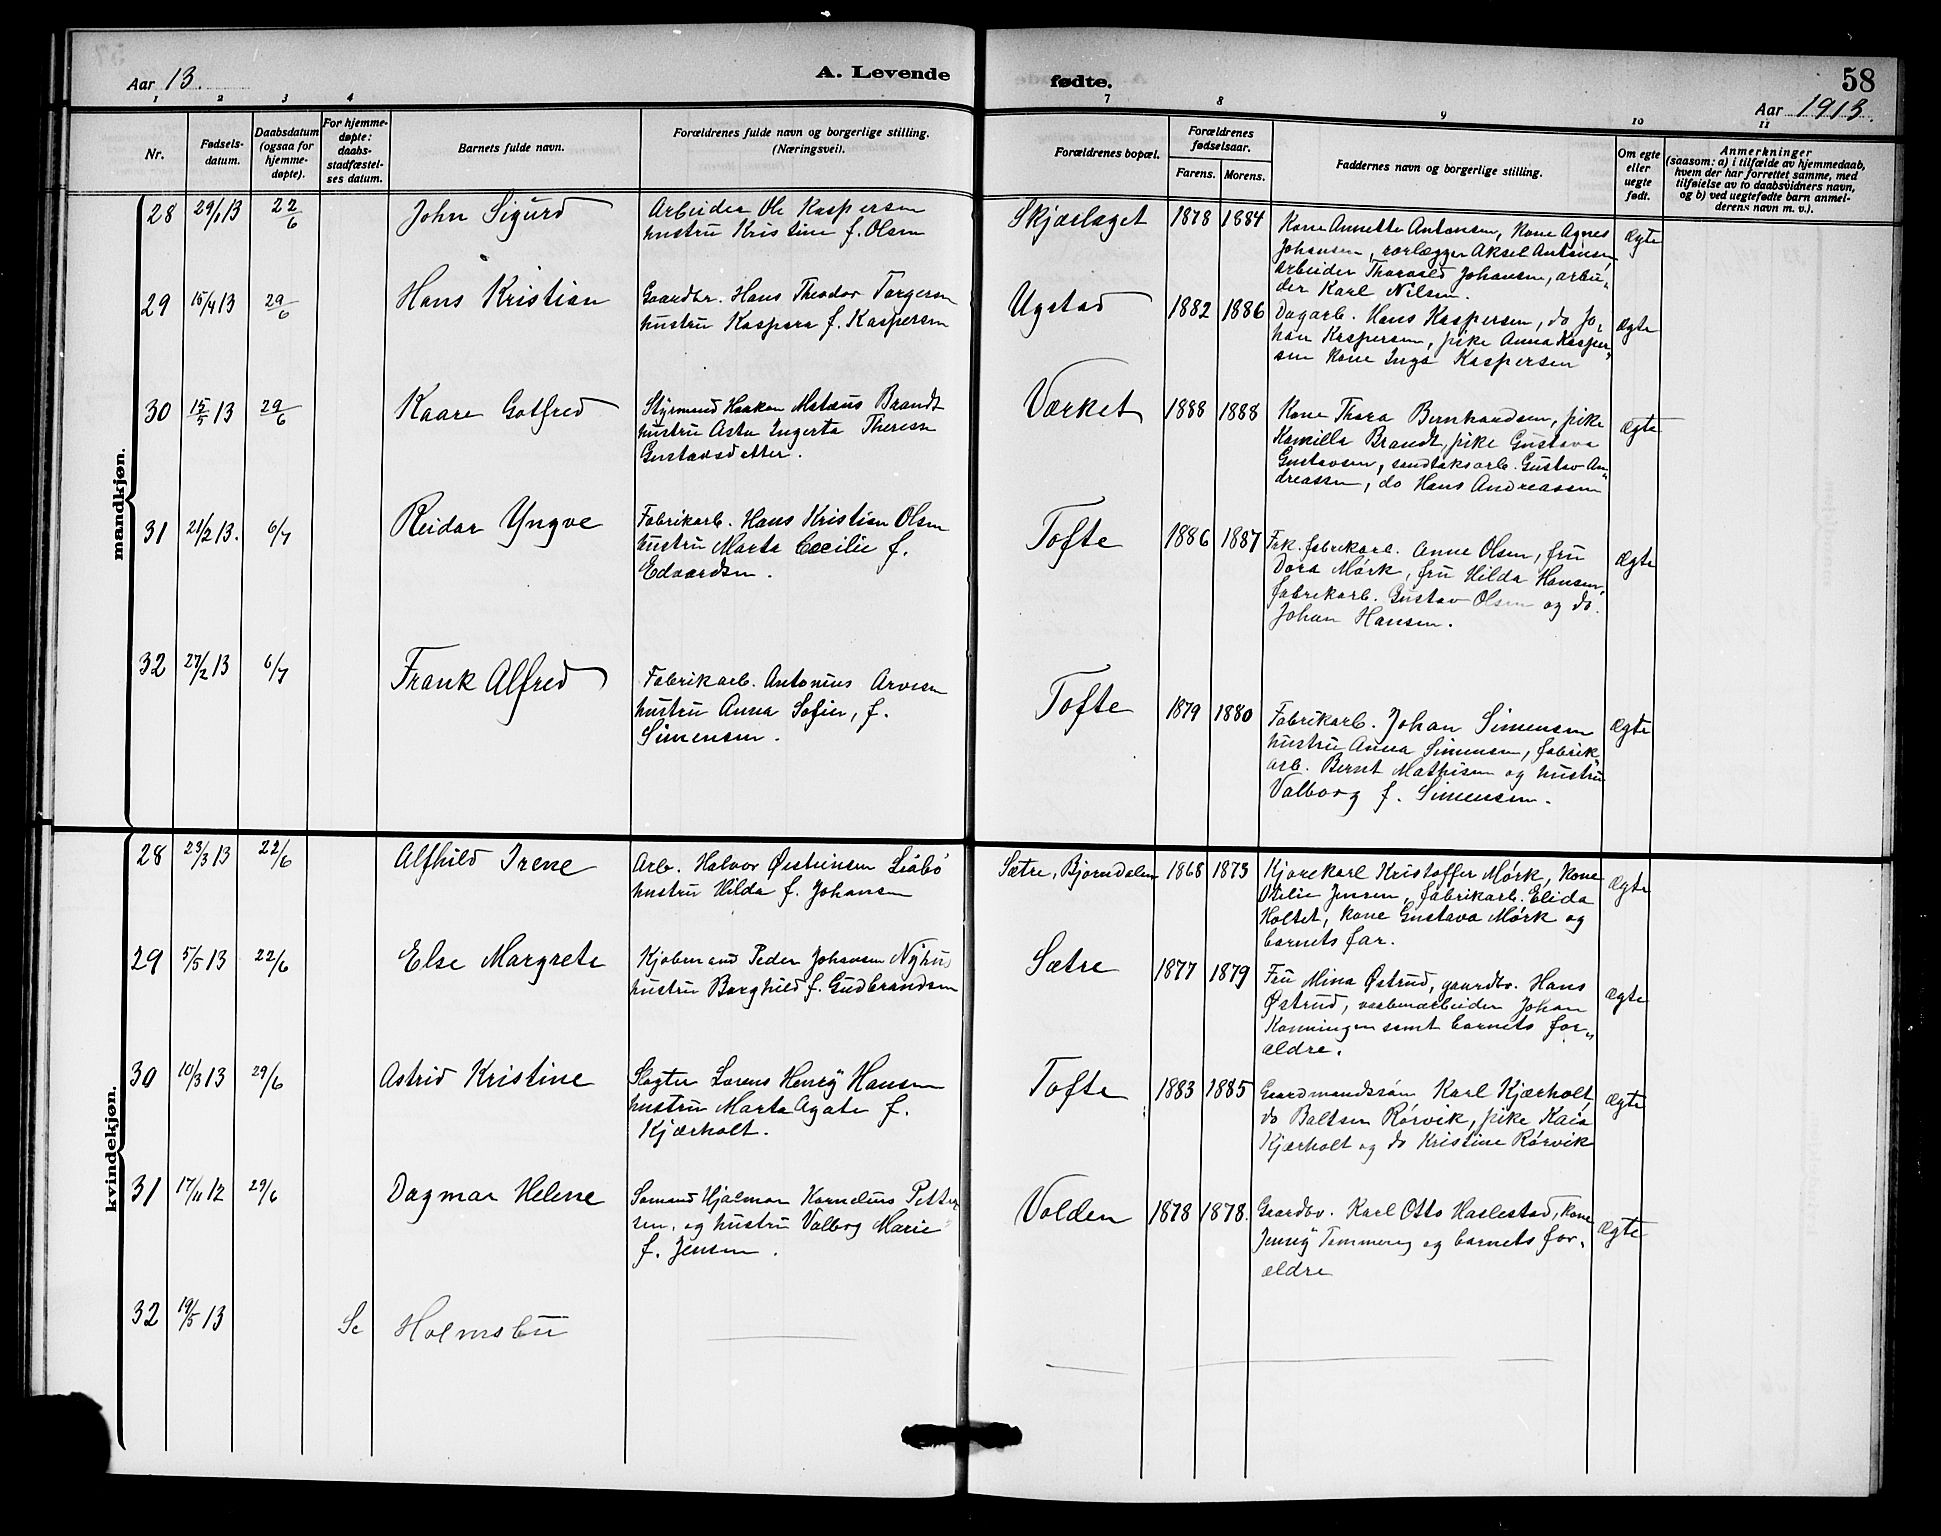 Aar 13.
A. Levende
fødte.
58
Aar 1913.
1 2 3 4 7 8 9 10 11
Nr.
Fødsels-
datum.
Daabsdatum
(ogsaa for
hjemme-
døpte).
For hjemme-
døpte:
daabs-
stadfæstel-
ses datum.
Barnets fulde navn.
Forældrenes fulde navn og borgerlige stilling.
(Næringsvei).
Forældrenes bopæl.
Forældrenes
fødselsaar.
Farens. Morens.
Faddernes navn og borgerlige stilling.
Om egte
eller
uegte
født.
Anmerkninger
(saasom: a) i tilfælde av hjemmedaab,
hvem der har forrettet samme, med
tilføielse av to daabsvidners navn,
og b) ved uegtefødte barn anmel-
derens navn m. v.).
mandkjøn.
28 29/1 13 22/6 John Sigurd
Arbeider Ole Kaspersen
hustru Kristine f. Olsen
Skjæslaget 1878 1884
Kone Annette Antonsen, kone Agnes
Johansen, rørlægger Aksel Antonsen
arbeider Thorvald Johansen, arbei-
der Karl Nilsen.
Ægte
29 15/4 13 29/6 Hans Kristian
Gaardbr. Hans Theodor Torgersen
hustru Kaspara f. Kaspersen
Ugstad 1882 1886
Dagarb. Hans Kaspersen, do Jo-
han Kaspersen, pike Anna Kasper-
sen kone Inga Kaspersen
Ægte
30 15/5 13 29/6 Kaare Gotfred
Styrmand Haakon Matæus Brandt
hustru Asta Ingerta Therese
Gustavsdatter.
Værket 1888 1888
Kone Thora Bernhardsen, pike
Kamilla Brandt, pike Gustava
Gustavsen, sandtaksarb. Gustav An-
dreassen, do Hans Andreassen
Ægte
31 21/2 13. 6/7 Reidar Yngve
Fabrikarb. Hans Kristian Olsen
hustru Marta Cecilie f.
Edvardsen.
Tofte 1886 1887
Frk. fabrikarb. Anne Olsen, fru
Dora Mørk, fru Hilda Hansen,
fabrikarb. Gustav Olsen og do.
Johan Hansen.
Ægte
32 27/2 13 6/7 Frank Alfred
Fabrikarb. Antonius Arvesen
hustru Anna Sofie, f.
Simensen.
Tofte 1879 1880
Fabrikarb. Johan Simensen
hustru Anna Simensen, fabrik-
arb. Bernt Mathisen og hustru
Valborg f. Simensen.
Ægte
kvindekjøn.
28 23/3 13 22/6 Alfhild Irene
Arb. Halvor Østensen
hustru Hilda f. Johansen
Sætre, Bjørndalen 1868 1873
Kjørekarl Kristoffer Mørk, kone
Otilie Jensen, fabrikarb. Elida
Holtet, kone Gustava Mørk og
barnets far.
Ægte
29 5/5 13 22/6 Else Margrete
Kjøbmand Peder Johansen Nyhus
hustru Borghild f. Gudbrandsen
Sætre 1877 1879
Fru Mina Østrud, gaardbr. Hans
Østrud, vaabenarbeider Johan
Konningen samt barnets for-
ældre.
Ægte
30 10/3 13 29/6 Astrid Kristine
Slagter Lorens Henry Hansen
hustru Marta Agate f.
Kjærholt.
Tofte 1883 1885
Gaardmandssøn Karl Kjærholt,
do Baltser Rørvik, pike Kaia
Kjærholt og do Kristine Rørvik
Ægte
31 17/11 12 29/6 Dagmar Helene
Sømand Hjalmar Kornelius Petter-
sen, og hustru Valborg Marie
f. Jensen.
Volden 1878 1878.
Gaardbr. Karl Otto Haslestad, kone
Jenny Tømmereng og barnets for-
ældre
Ægte
32 19/5 13 Se Holmsbu